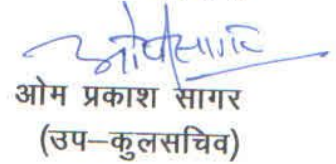 ओम प्रकाश सागर
(उप–कुलसचिव)